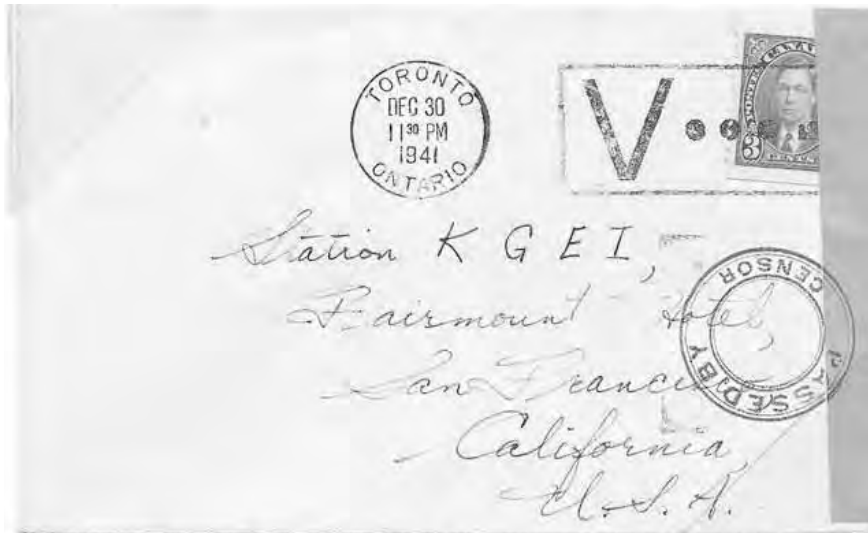 TORONTO
DEC 30
11 30 PM
1941
ONTARIO
V
3
Station K G E I,
Fairmount Hotel,
San Francisco
California,
U.S.A.
PASSED BY
CENSOR